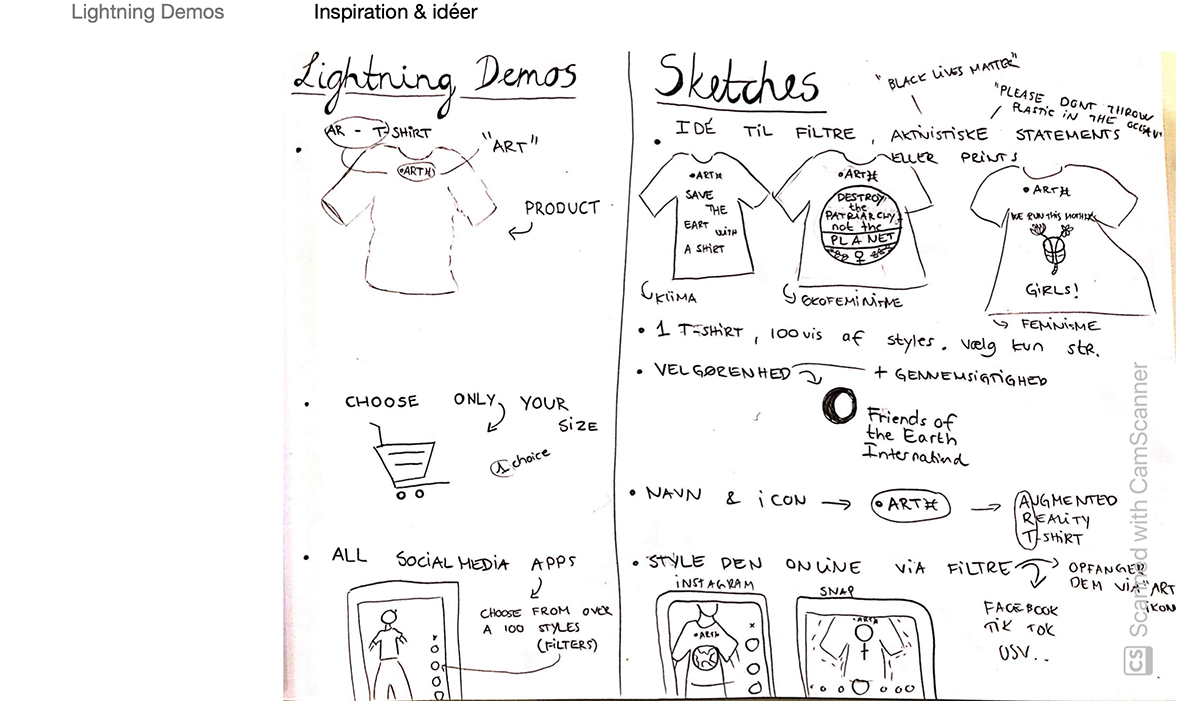 Lightning Demos
Inspiration & idéer
Lightning Demos
AR - T-SHIRT
"ART"
•ART
PRODUCT
• CHOOSE ONLY YOUR
SIZE
1 choice
• ALL SOCIAL MEDIA APPS
CHOOSE FROM OVER
A 100 STYLES
(FILTERS)
Sketches
"BLACK LIVES MATTER"
"PLEASE DONT THROW
PLASTIC IN THE OCEAN"
• IDÉ TIL FILTRE, AKTIVISTISKE STATEMENTS
ELLER PRINTS
•ART
SAVE
THE
EART WITH
A SHIRT
KLIMA
•ART
DESTROY
the
PATRIARCHY
not the
PLANET
ØKOFEMINISME
•ART
WE RUN THIS
GIRLS!
FEMINISME
• 1 T-SHIRT, 100vis af styles. Vælg kun str.
• VELGØRENHED + GENNEMSIGTIGHED
Friends of
the Earth
• NAVN & ICON → •ART → AUGMENTED
REALITY
T-SHIRT
• STYLE DEN ONLINE VIA FILTRE
OPFANGER
DEM VIA "ART
IKON
INSTAGRAM
•ART
SNAP
•ART
FACEBOOK
TIK TOK
OSV..
CS Scanned with CamScanner